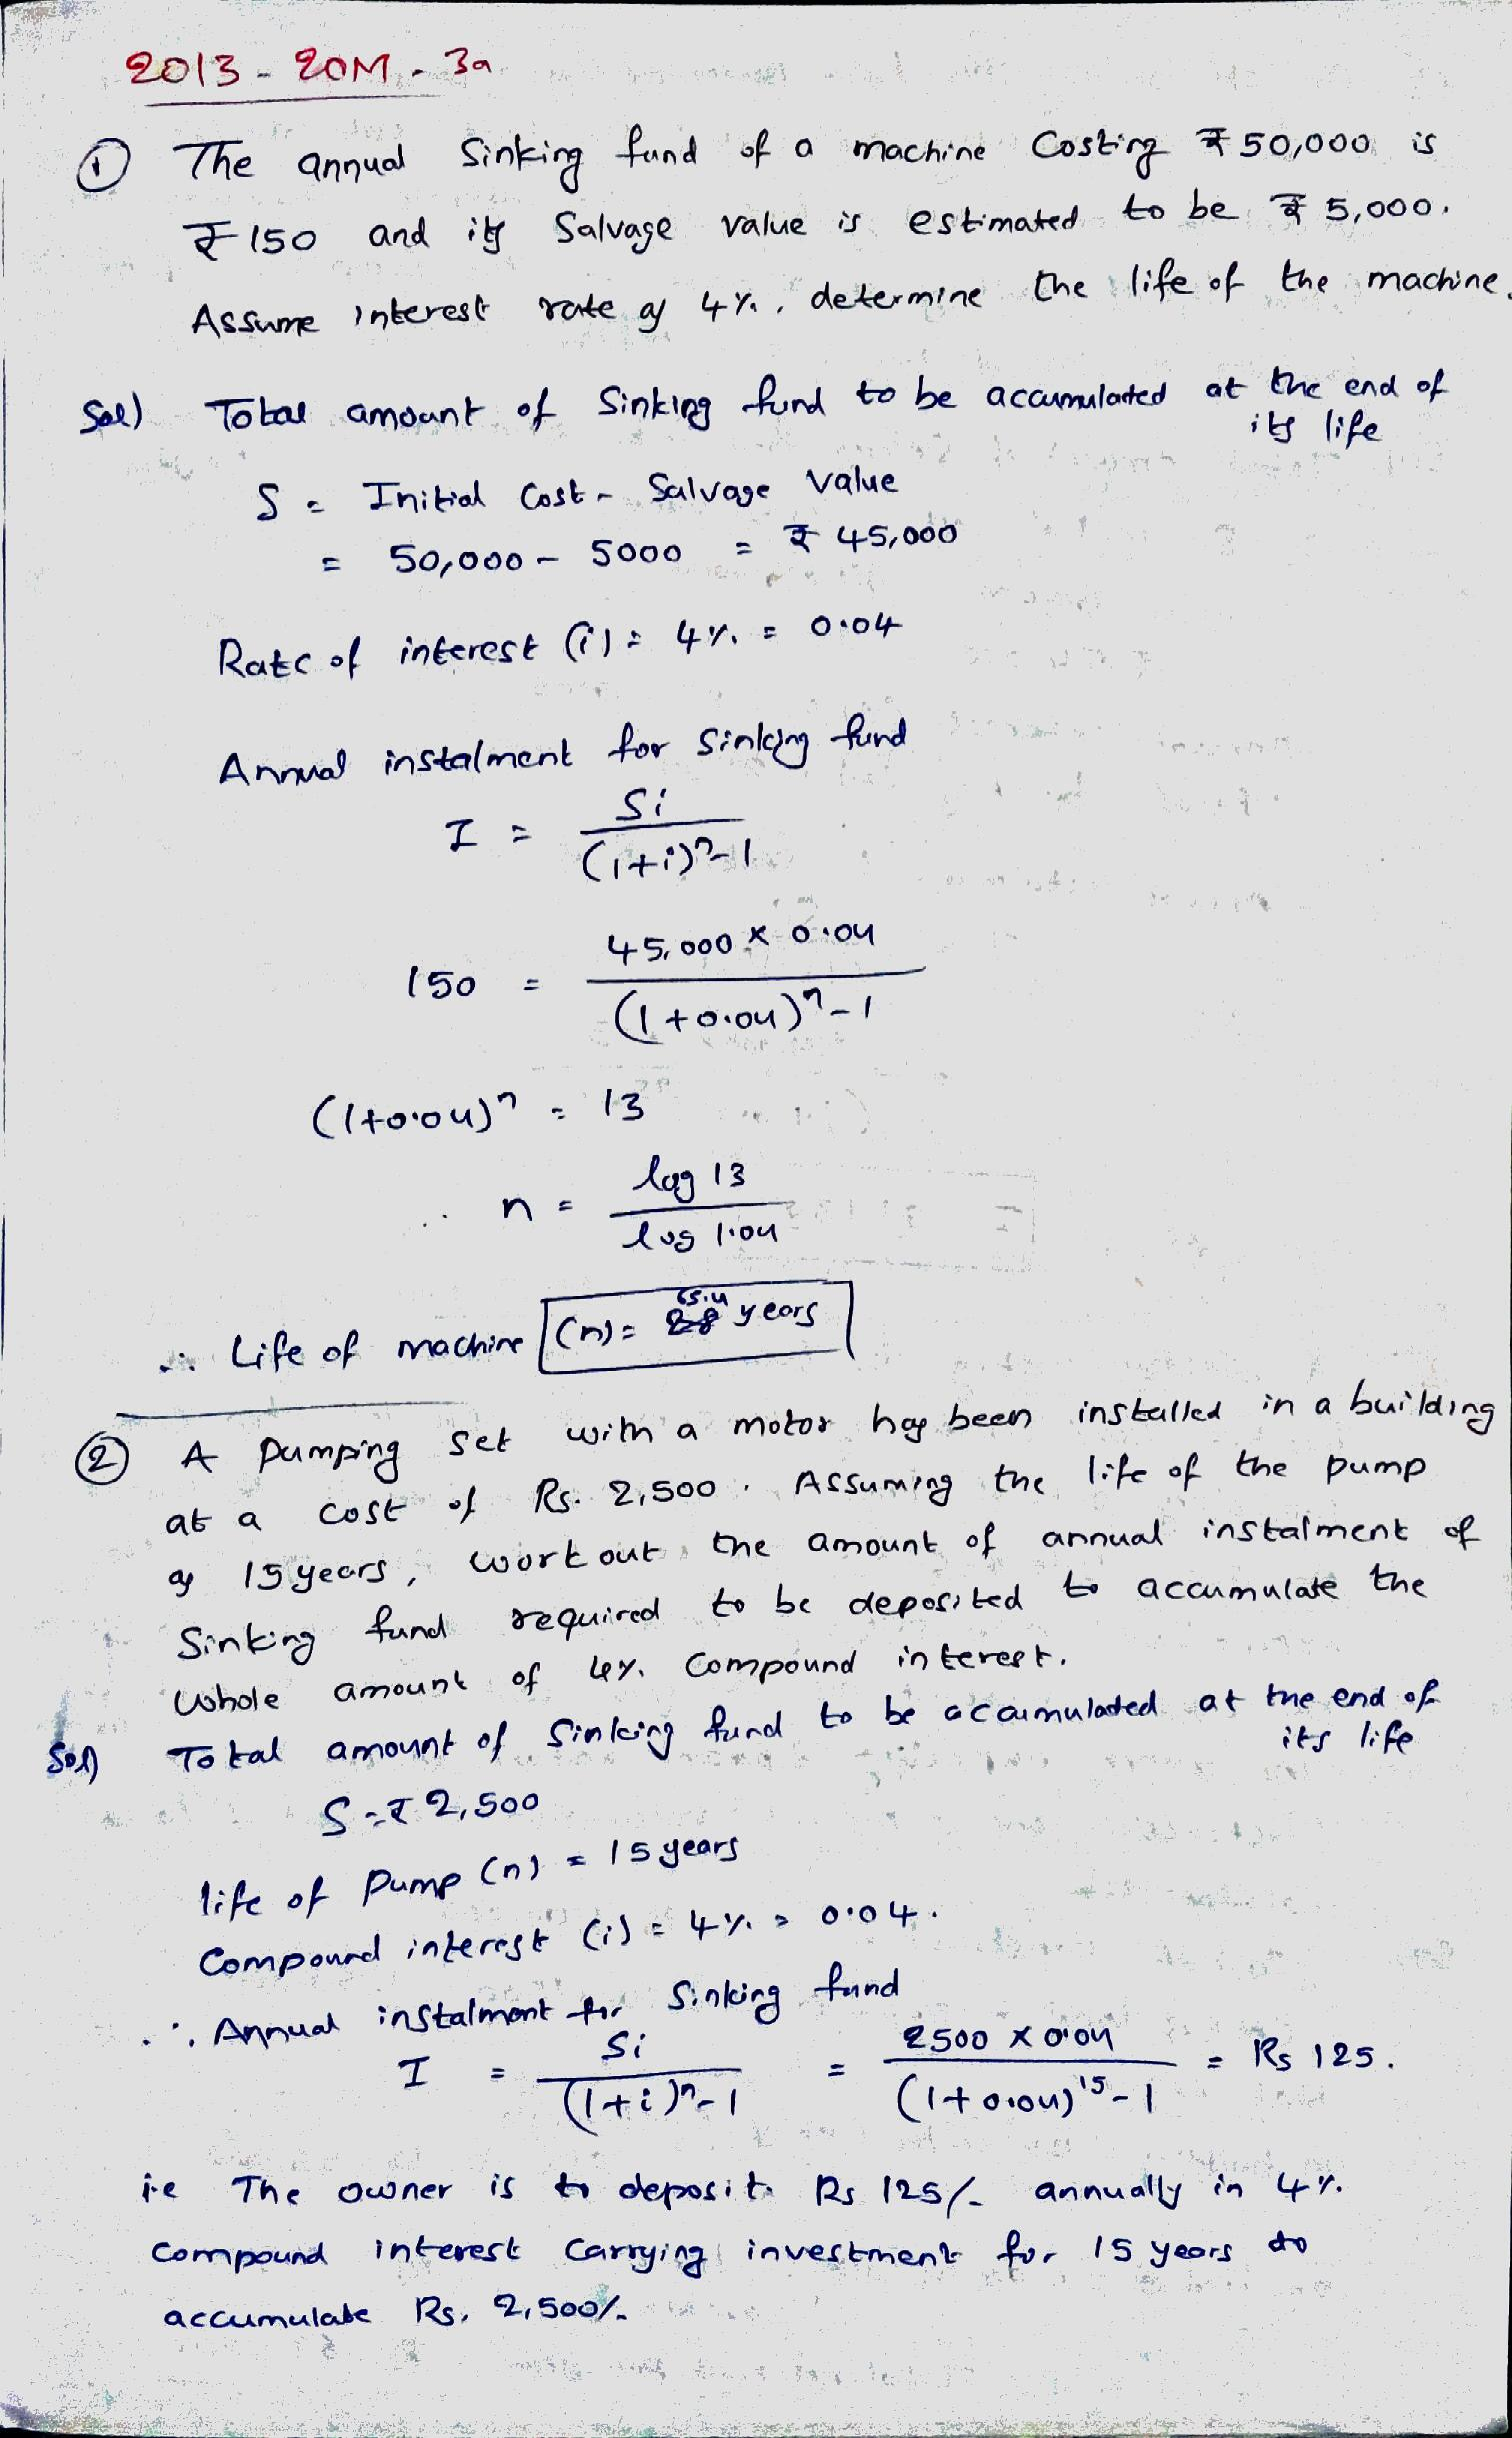 2013 - 20M - 3a
① The annual Sinking fund of a machine Costing ₹ 50,000 is
₹ 150 and its Salvage value is estimated to be ₹ 5,000.
Assume interest rate as 4%, determine the life of the machine.
Sol) Total amount of Sinking fund to be accumulated at the end of
its life
S = Initial Cost - Salvage value
= 50,000 - 5000 = ₹ 45,000
Rate of interest (i) = 4% = 0.04
Annual instalment for Sinking fund
I = Si / (1+i)^n - 1
150 = 45,000 x 0.04 / (1+0.04)^n - 1
(1+0.04)^n = 13
∴ n = log 13 / log 1.04
∴ Life of machine (n) = 65.4 years
② A Pumping set with a motor has been installed in a building
at a cost of Rs. 2,500. Assuming the life of the pump
as 15 years, workout the amount of annual instalment of
Sinking fund required to be deposited to accumulate the
whole amount of 4% Compound interest.
Sol) Total amount of Sinking fund to be accumulated at the end of
its life
S = ₹ 2,500
life of Pump (n) = 15 years
Compound interest (i) = 4% = 0.04.
∴ Annual instalment for Sinking fund
I = Si / (1+i)^n - 1 = 2500 x 0.04 / (1+0.04)^15 - 1 = Rs 125.
i.e The owner is to deposit Rs 125/- annually in 4%
compound interest carrying investment for 15 years to
accumulate Rs. 2,500/-